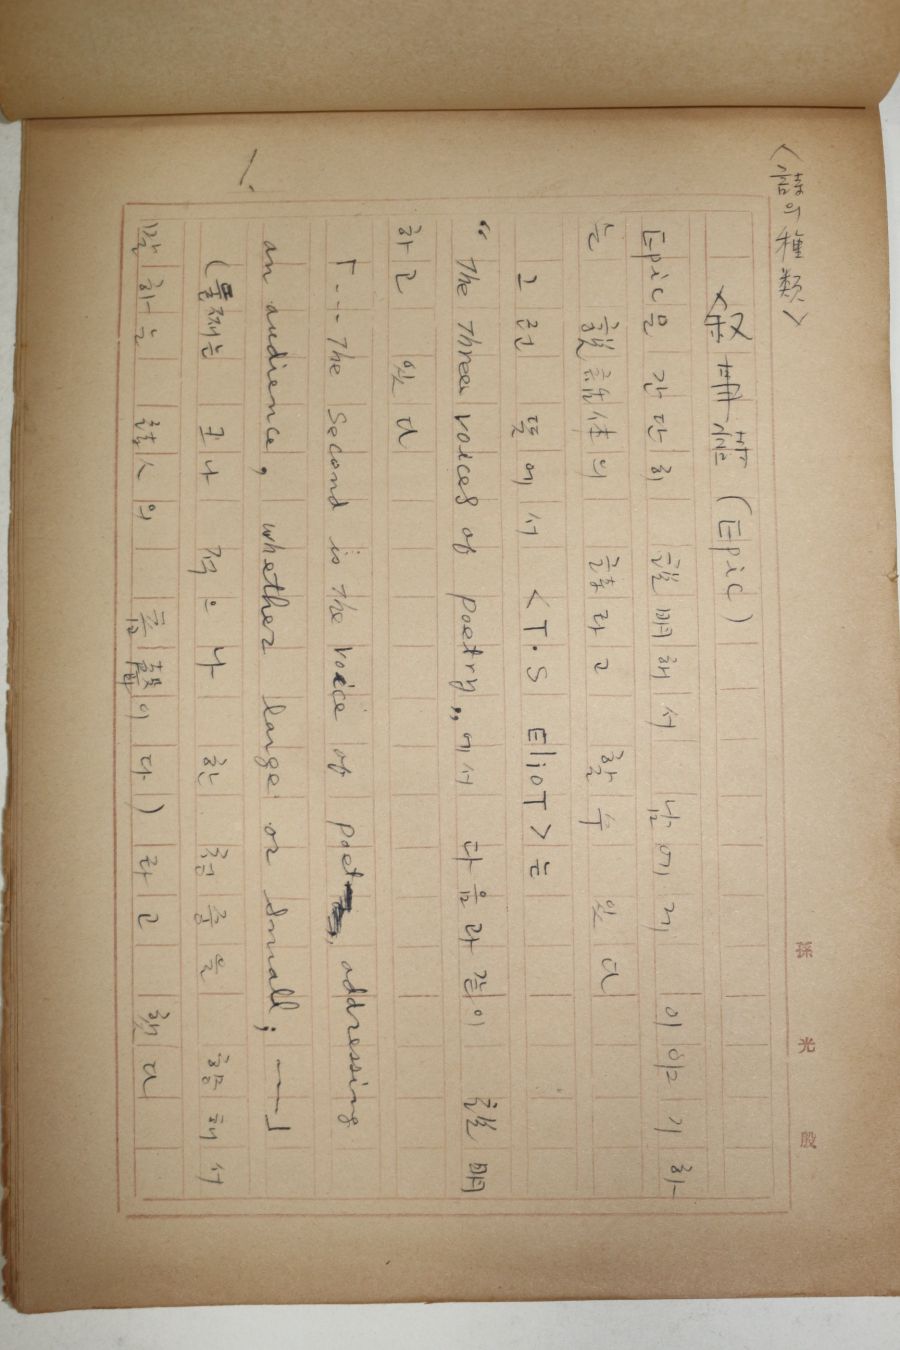 <詩의 種類>
<叙事詩 (Epic)
Epic은 간단히 説明해서 남에게 이야기하
는 説話体의 詩라고 할수 있다
그런 뜻에서 <T·S ElioT>는
"The Three voices of poetry„에서 다음과같이 説明
하고 있다
「...The Second is the voice of poet, addressing
an audience, whether large or small; ——」
(둘째는 크나 적으나 한 청중을 향해서
말하는 詩人의 音聲이다) 라고 했다
1.
孫 光 殷